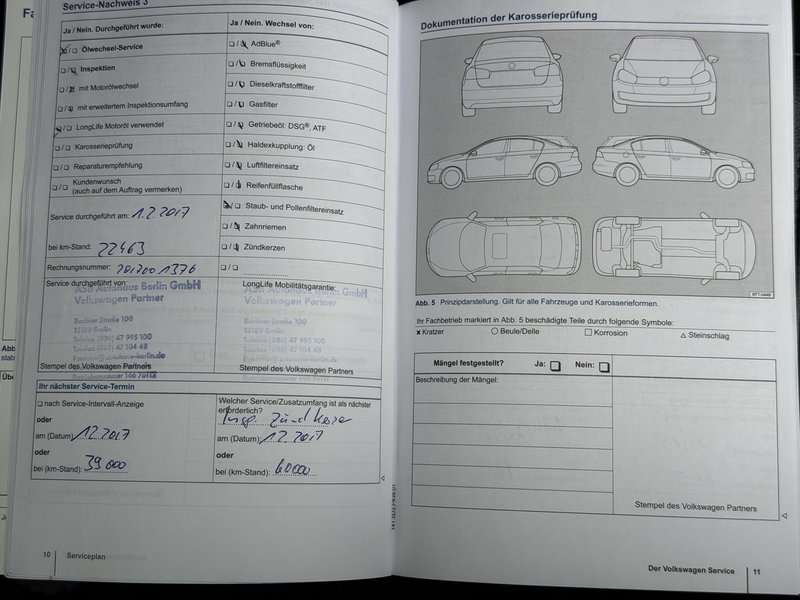 Service-Nachweis 3
Ja / Nein. Durchgeführt wurde:
Ölwechsel-Service
Inspektion
mit Motorölwechsel
mit erweitertem Inspektionsumfang
LongLife Motoröl verwendet
Karosserieprüfung
Reparaturempfehlung
Kundenwunsch
(auch auf dem Auftrag vermerken)
Service durchgeführt am: 1.2.2017
bei km-Stand: 22463
Rechnungsnummer:
Service durchgeführt von:
ASB Autohaus Berlin GmbH
Volkswagen Partner
Berliner Straße 100
13189 Berlin
Telefon (030) 47 995 100
Telefax (030) 47 104 48
Stempel des Volkswagen Partners
Ja / Nein. Wechsel von:
AdBlue®
Bremsflüssigkeit
Dieselkraftstofffilter
Gasfilter
Getriebeöl: DSG®, ATF
Haldexkupplung: Öl
Luftfiltereinsatz
Reifenfüllflasche
Staub- und Pollenfiltereinsatz
Zahnriemen
Zündkerzen
LongLife Mobilitätsgarantie:
ASB Autohaus Berlin GmbH
Volkswagen Partner
Berliner Straße 100
13189 Berlin
Telefon (030) 47 995 100
Telefax (030) 47 104 48
Stempel des Volkswagen Partners
Ihr nächster Service-Termin
nach Service-Intervall-Anzeige
oder
am (Datum): 12.2017
oder
bei (km-Stand): 39 000
Welcher Service/Zusatzumfang ist als nächster
erforderlich?
am (Datum): 12.2017
oder
bei (km-Stand): 60000
10 Serviceplan
Dokumentation der Karosserieprüfung
Abb. 5 Prinzipdarstellung. Gilt für alle Fahrzeuge und Karosserieformen.
Ihr Fachbetrieb markiert in Abb. 5 beschädigte Teile durch folgende Symbole:
Kratzer Beule/Delle Korrosion Steinschlag
Mängel festgestellt? Ja: Nein:
Beschreibung der Mängel:
Stempel des Volkswagen Partners
Der Volkswagen Service 11